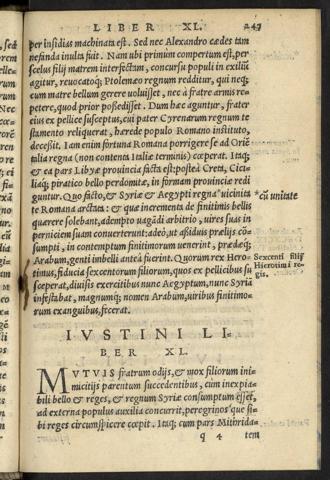 LIBER XL. 247
per insidias machinata est. Sed nec Alexandro cædes tam
nefanda inulta fuit. Nam ubi primum compertum est, per
scelus filij matrem interfectam, concursu populi in exiliũ
agitur, reuocatoq; Ptolemæo regnum redditur, qui neq;
cum matre bellum gerere uoluisset, nec à fratre armis re-
petere, quod prior possedisset. Dum hæc aguntur, frater
eius ex pellice susceptus, cui pater Cyrenarum regnum te
stamento reliquerat, hærede populo Romano instituto,
decessit. Iam enim fortuna Romana porrigere se ad Oriẽ
talia regna (non contenta Italiæ terminis) cœperat. Itaq;
& ea pars Libyæ prouincia facta est: posteà Creta, Cici-
liaq; piratico bello perdomitæ, in formam prouinciæ redi
guntur. Quo facto, & Syriæ & Aegypti regna *uicinita
te Romana arctata: & quæ incrementa de finitimis bellis
quærere solebant, adempto uagãdi arbitrio, uires suas in
perniciem suam conuerterunt: adeò, ut aßiduis prælijs cõ
sumpti, in contemptum finitimorum uenerint, prædæq;
Arabum, genti imbelli anteà fuerint. Quorum rex Hero-
timus, fiducia sexcentorum filiorum, quos ex pellicibus su
sceperat, diuisis exercitibus nunc Aegyptum, nunc Syriã
infestabat, magnumq; nomen Arabum, uiribus finitimo-
rum exanguibus, fecerat.
*cũ unitate
Sexcenti filij
Hierotini re
gis.
IVSTINI LI-
BER XL.
MVTVIS fratrum odijs, & mox filiorum ini-
micitijs parentum succedentibus, cùm inexpia-
bili bello & reges, & regnum Syriæ consumptum esset,
ad externa populus auxilia concurrit, peregrinos'que si-
bi reges circumspicere cœpit. Itaq; cum pars Mithrida-
q 4 tem